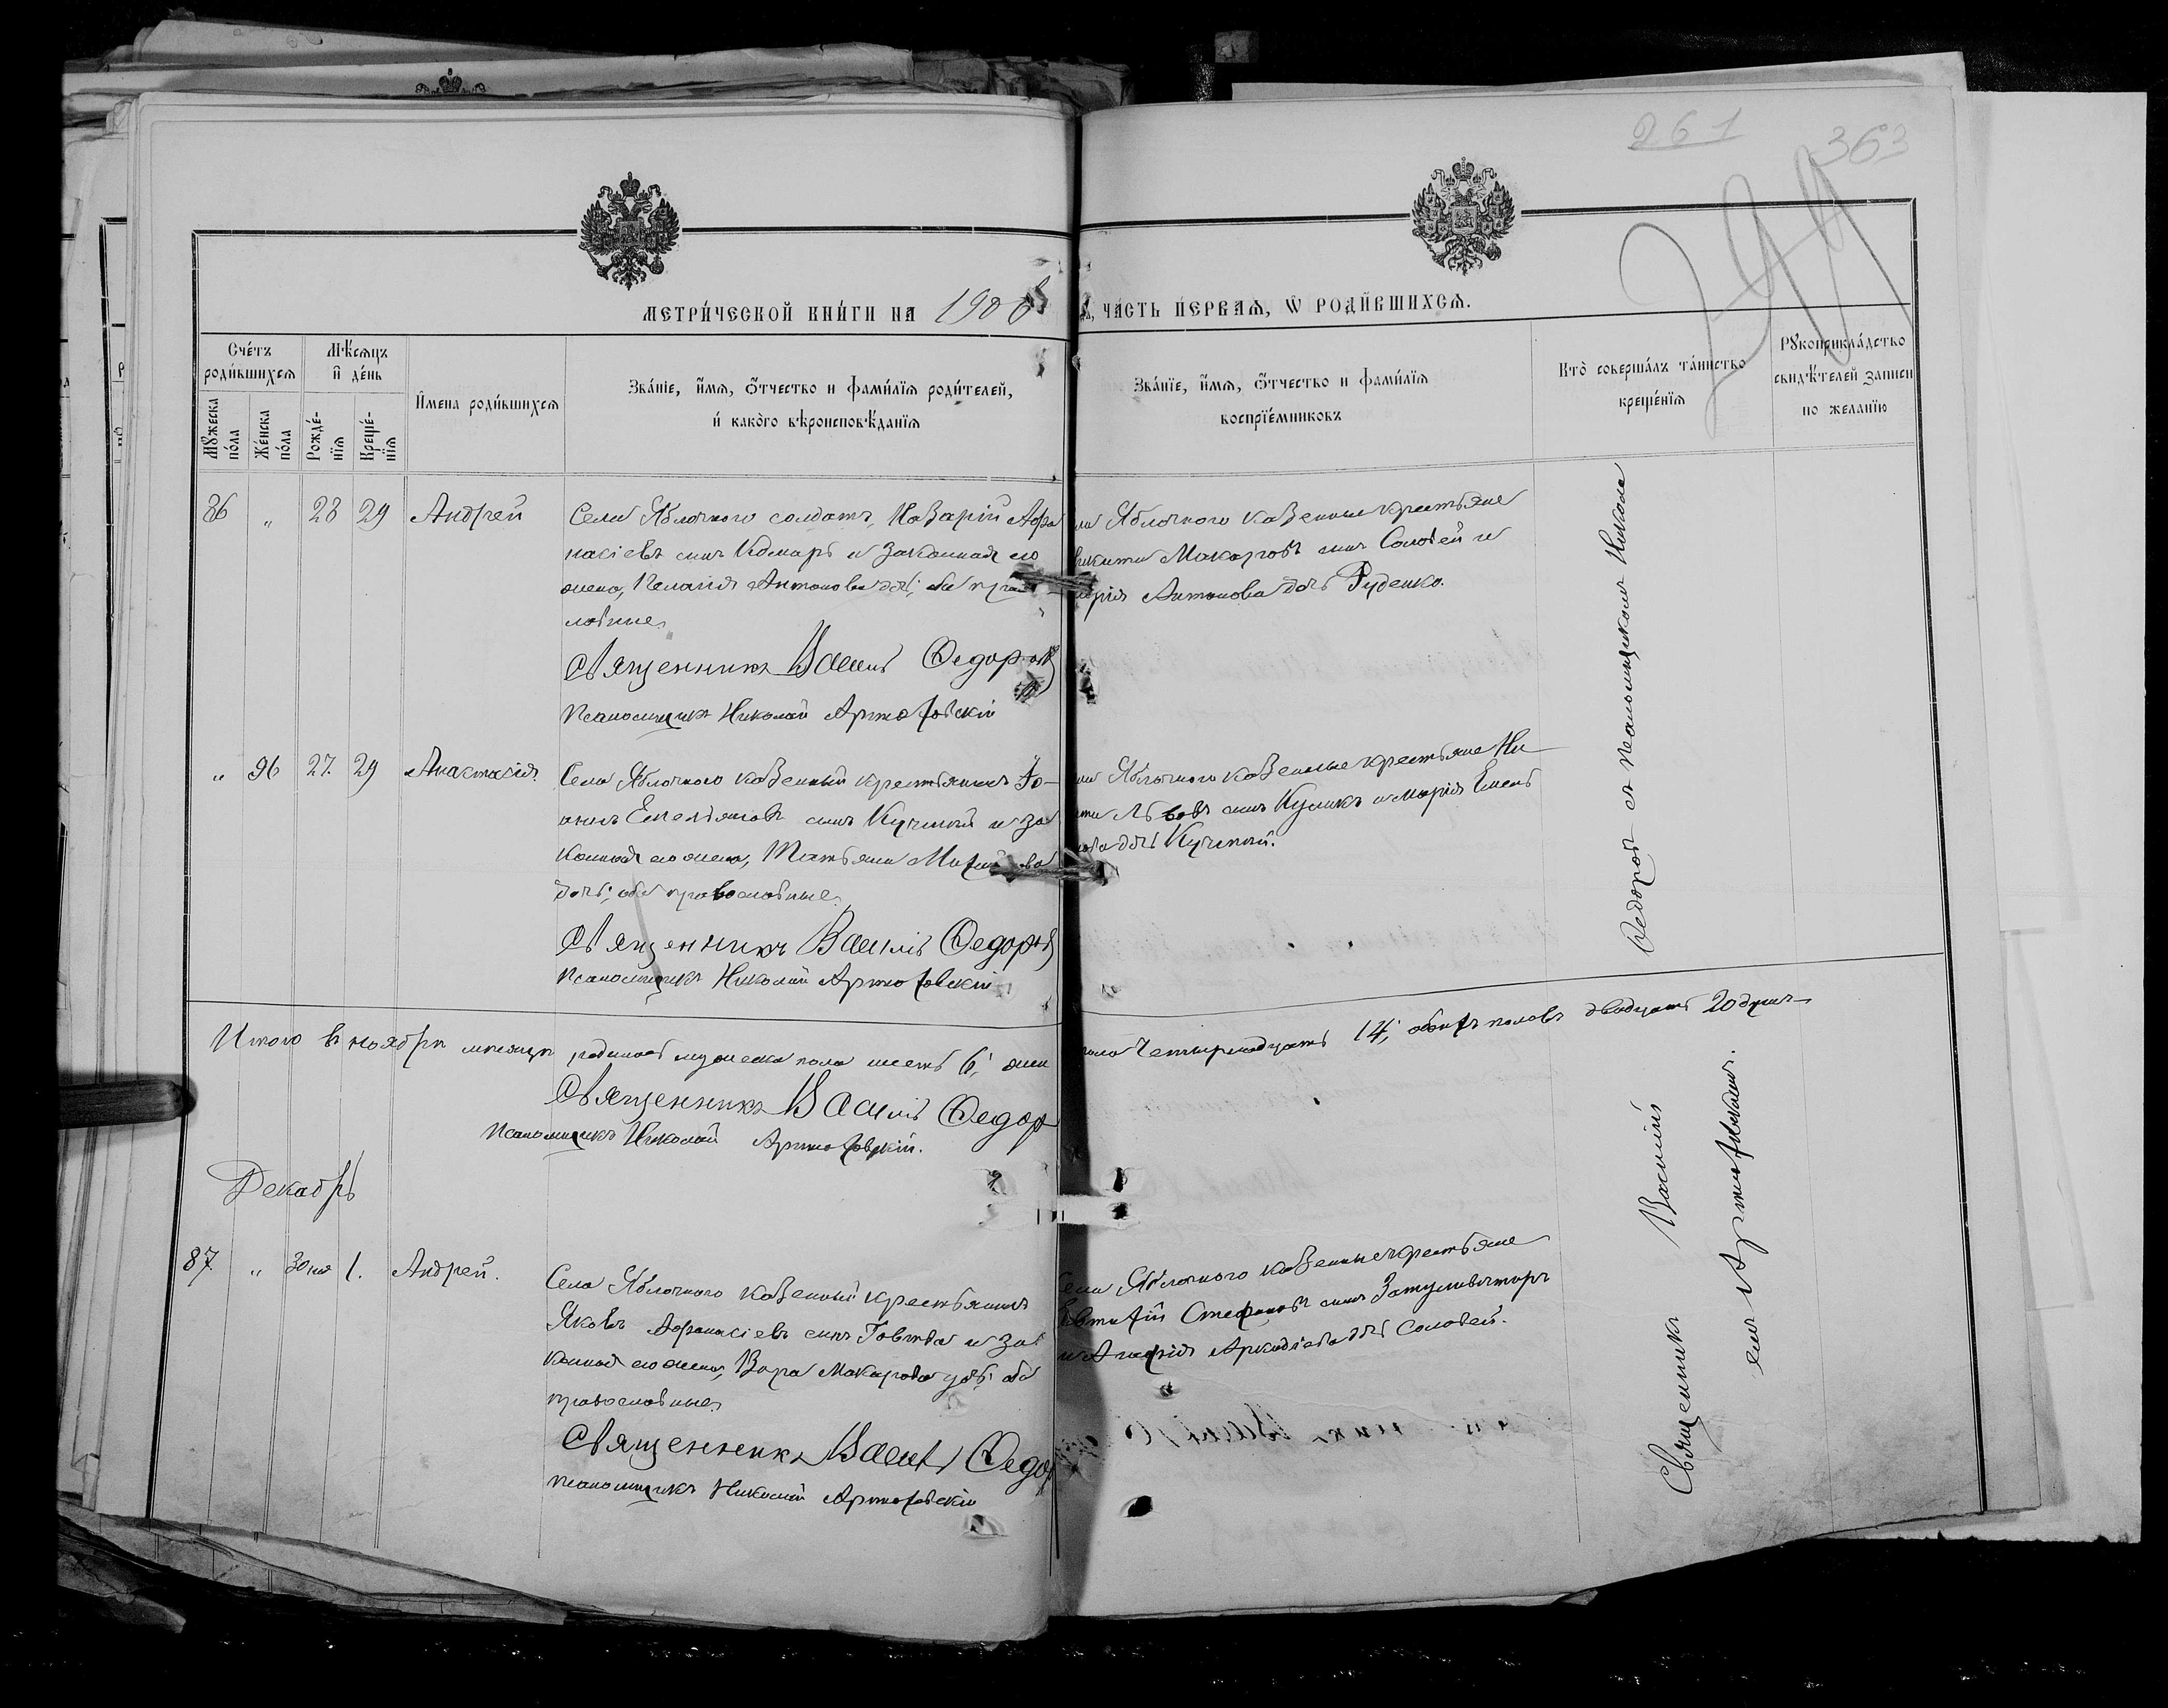 261
363
МЕТРИ́ЧЕСКОЙ КНИ́ГИ НА 1908
ЧАСТЬ ПЕ́РВАѦ, Ѡ РОДИ́ВШИХСѦ.
Сче́тъ роди́вшихсѧ
Мѣ́сѧцъ и҆ де́нь
И҆мена роди́вшихсѧ
Зва́нїе, и҆́мѧ, ѻ҆́тчество и фами́лїѧ роди́телей,
и҆ како́го вѣроисповѣ́данїѧ
Зва́нїе, и҆́мѧ, ѻ҆́тчество и фами́лїѧ
воспрїе́мниковъ
Кто̀ соверша́лъ та́инство
креще́нїѧ
Рꙋкоприкла́дство
свидѣ́телей записи
по желанїю
Мꙋжеска по́ла
Же́нска по́ла
Рожде́нїѧ
Креще́нїѧ
86 „ 28 29 Андрей
Села Яблочного солдатъ, Назарій Афа
насіевъ сынъ Комаръ и законная его
жена, Пелагія Антонова дочь; оба право
славные.
Священникъ Василій Федоровъ
Псаломщикъ Николай Артюховскій
Яблочного казенные крестьяне
Никита Макаровъ сынъ Соловей и
Марія Антонова дочь Руденко.
„ 96 27 29 Анастасія
Села Яблочного казенный крестьянинъ
Емельяновъ сынъ Кучмій и за
конная его жена, Татьяна
дочь; оба православные.
Священникъ Василій Федоровъ
Псаломщикъ Николай Артюховскій
Яблочного казенные крестьяне Ни
Львовъ сынъ Куликъ и Марія Емель
нова дочь
Итого въ ноябрѣ мѣсяцѣ родилось мужеска пола шесть 6; жен
пола четырнадцать 14; обоихъ половъ двадцать 20 душъ
Священникъ Василій Федор
Псаломщикъ Николай Артюховскій.
Декабрь
87 „ 30 но 1. Андрей.
Села Яблочного казенный крестьянинъ
Яковъ Афанасіевъ сынъ Говтва и за
конная его жена, Вѣра Макарова дочь; оба
православные
Священникъ Василій Федор
Псаломщикъ Николай Артюховскій
Села Яблочного казенные крестьяне
Евтихій Стефановъ сынъ
и Аркадіева дочь Соловей.
Священникъ Василій
Федоровъ съ Псаломщикомъ Никола
емъ Артюховскимъ.